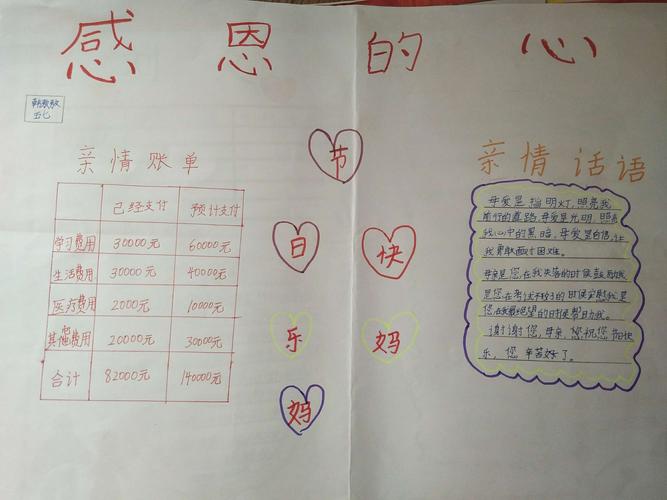 感恩的心
五七
亲情账单
已经支付 预计支付
学习费用 30000元 60000元
生活费用 30000元 40000元
医疗费用 2000元 10000元
其他费用 20000元 30000元
合计 82000元 140000元
节
日 快
乐 妈
妈
亲情话语
母爱是指明灯,照亮我
前行的道路,母爱是光明,照亮
我心中的黑暗,母爱是自信,让
我勇敢面对困难。
母亲是您,在我失落的时候鼓励我
是您,在考试不好的时候安慰我是
您,在我最绝望的时候帮助我。
谢谢您,母亲,您,祝您节日快
乐,您辛苦了。